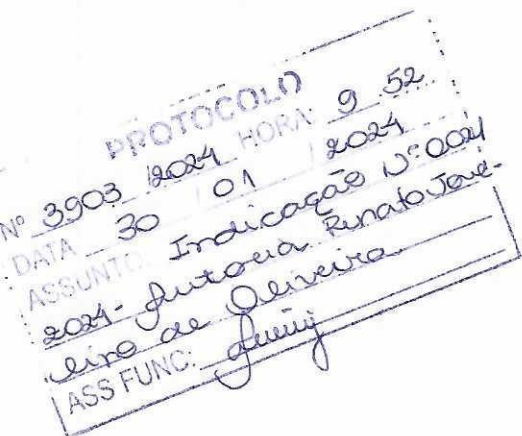 PROTOCOLO
Nº 3903 /2024 HORA: 9 52
DATA 30 / 01 / 2024
ASSUNTO: Indicação Nº 0021
2024 - Autoria Renato
leiro de Oliveira
ASS FUNC: